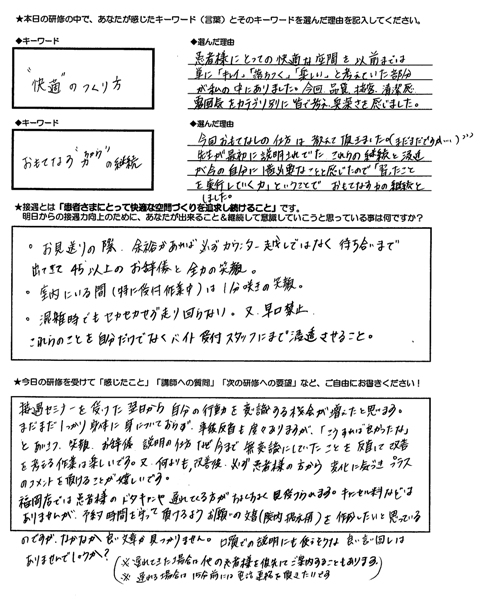 ★本日の研修の中で、あなたが感じたキーワード（言葉）とそのキーワードを選んだ理由を記入してください。
◆キーワード
"快適"のつくり方
◆選んだ理由
患者様にとっての快適な空間を以前までは
単に「キレイ」「落ちつく」「楽しい」と考えていた部分
が私の中にありました。今回、品質、接客、清潔感、
雰囲気をカテゴリ別に皆で考え、奥深さを感じました。
◆キーワード
おもてなす の継続
◆選んだ理由
今回おもてなしの仕方は 頂きました(まだまだですが…)
先生が最初に説明されていた これらの継続と浸透
が今の自分に1番必要なことと感じたので「習ったこと
を実行していく力」ということで おもてなす力の継続と
しました。
★接遇とは「患者さまにとって快適な空間づくりを追求し続けること」です。
明日からの接遇力向上のために、あなたが出来ること＆継続して意識していこうと思っている事は何ですか？
◦ お見送りの際、余裕があれば必ずカウンター越しではなく待ち合いまで
出てきて45°以上のお辞儀と全力の笑顔。
◦ 室内にいる間(特に受付作業中)は1分咲きの笑顔。
◦ 混雑時でもセカセカせず走り回らない。又、早口禁止
これらのことを自分だけでなくバイト受付スタッフにまで浸透させること。
★今日の研修を受けて「感じたこと」「講師への質問」「次の研修への要望」など、ご自由にお書きください！
接遇セミナーを受けた翌日から自分の行動を意識する機会が増えたと思います。
まだまだしっかり身についておらず、事後反省も度々ありますが、「こうすれば良かったな」
とあり、笑顔、お辞儀、説明の仕方など今まで無意識にしていたことを反省して改善
を考える作業は楽しいです。又、何よりも改善後、必ず患者様の方から変化に気づきプラス
のコメントを頂けることが嬉しいです。
福岡店では患者様のドタキャンや遅れてくる方が 見受けられます。キャンセル料などは
ありませんが、予約時間を守って頂けるようお願いの文書(院内掲示用)を作成したいと思っている
のですが、なかなか良い文章が見つかりません。口頭での説明にも使えそうな良い言い回しは
ありませんでしょうか？
(※遅れてきた場合は他の患者様を優先してご案内することもあります。
※遅れる場合は15分前には電話連絡を頂きたいです)